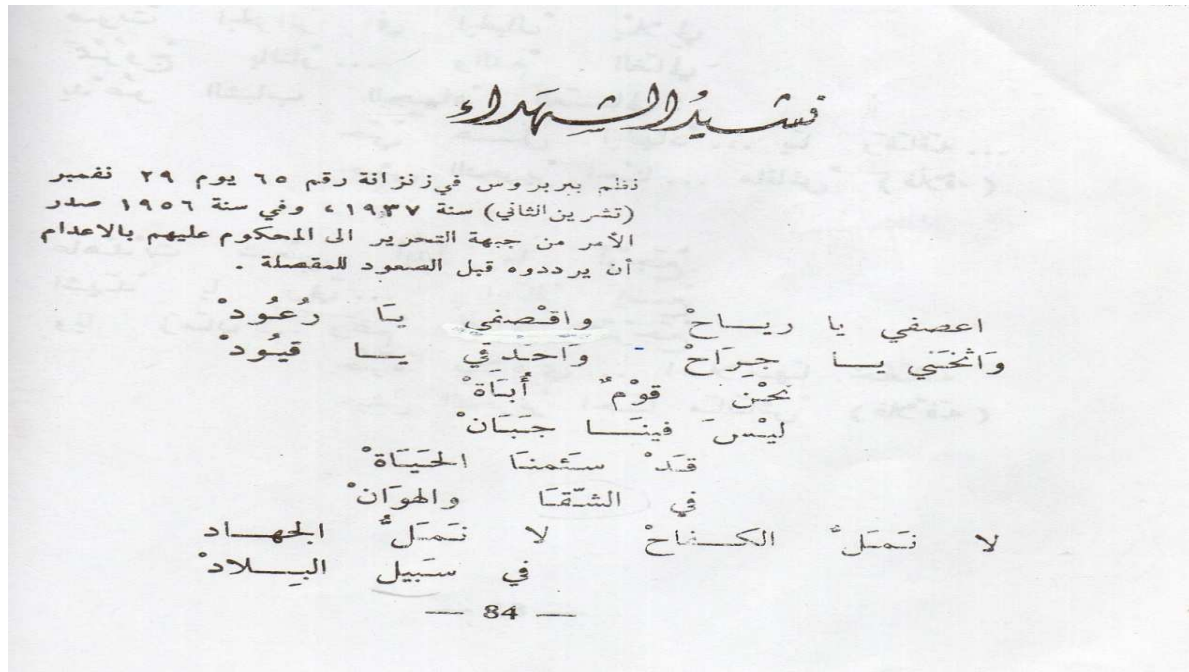 نشيدُ الشهداء
نظم ببربروس في زنزانة رقم ٦٥ يوم ٢٩ نفمبر
(تشرين الثاني) سنة ١٩٣٧، وفي سنة ١٩٥٦ صدر
الأمر من جبهة التحرير الى المحكوم عليهم بالاعدام
أن يرددوه قبل الصعود للمقصلة .
اعصفي يا رياحْ واقْصفي يَا رُعُودْ
وَاثْخَني يا جِرَاحْ وَاحْدِقي يا قيُودْ
نحْن قوْمٌ أُبَاةْ
ليْسَ فينَا جَبَانْ
قَدْ سَئمنَا الحَيَاةْ
في الشّقَا والهوَانْ
لا نَمَلُّ الكفاحْ لا نَمَلُّ الجهاد
في سَبيل البِلادْ
— 84 —